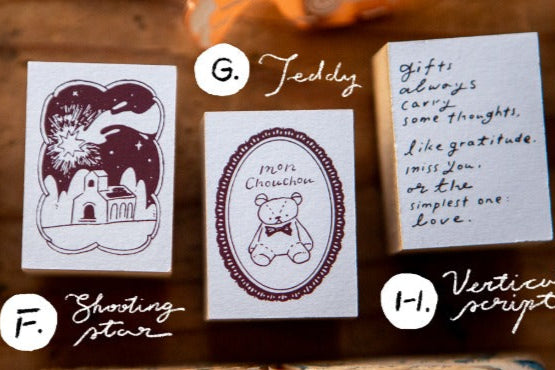 G. Teddy
gifts
always
carry
some thoughts,
like gratitude.
miss you.
or the
simplest one:
love.
mon
Chouchou
F. Shooting
star
H.
script